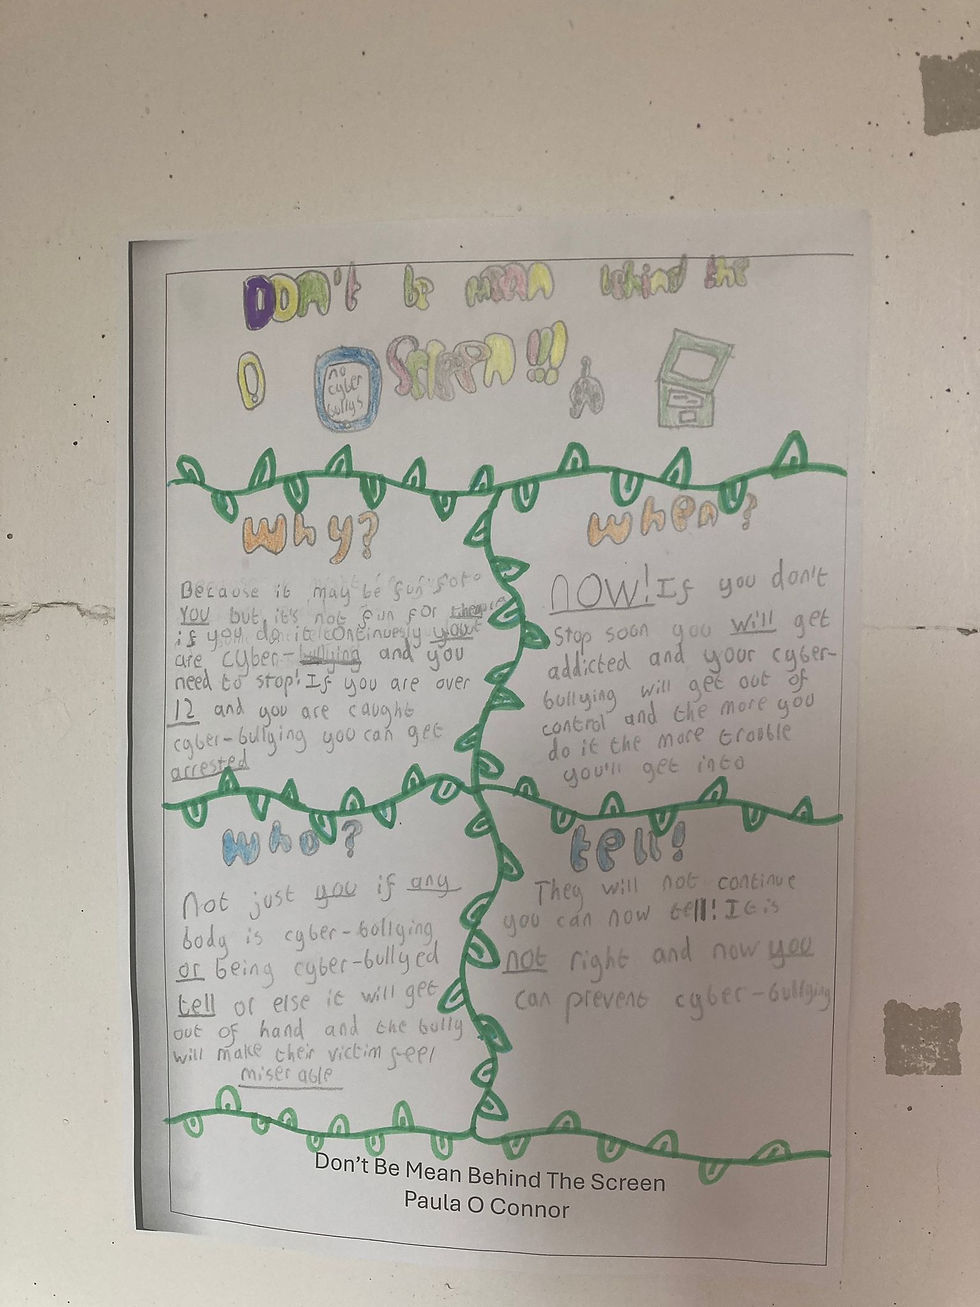 Don't be mean behind the
Screen!!!
no
cyber
bullys
Why?
Because it may be fun for
you but it's not fun for
if you do it continuesly you
are cyber-bullying and you
need to stop! If you are over
12 and you are caught
cyber-bullying you can get
arrested
When?
NOW! If you don't
stop soon you will get
addicted and your cyber-
bullying will get out of
control and the more you
do it the more trouble
you'll get into
Who?
Not just you if any
body is cyber-bullying
or being cyber-bullyed
tell or else it will get
out of hand and the bully
will make their victim feel
miserable
tell!
They will not continue
you can now tell! It is
not right and now you
can prevent cyber-bullying
Don't Be Mean Behind The Screen
Paula O Connor